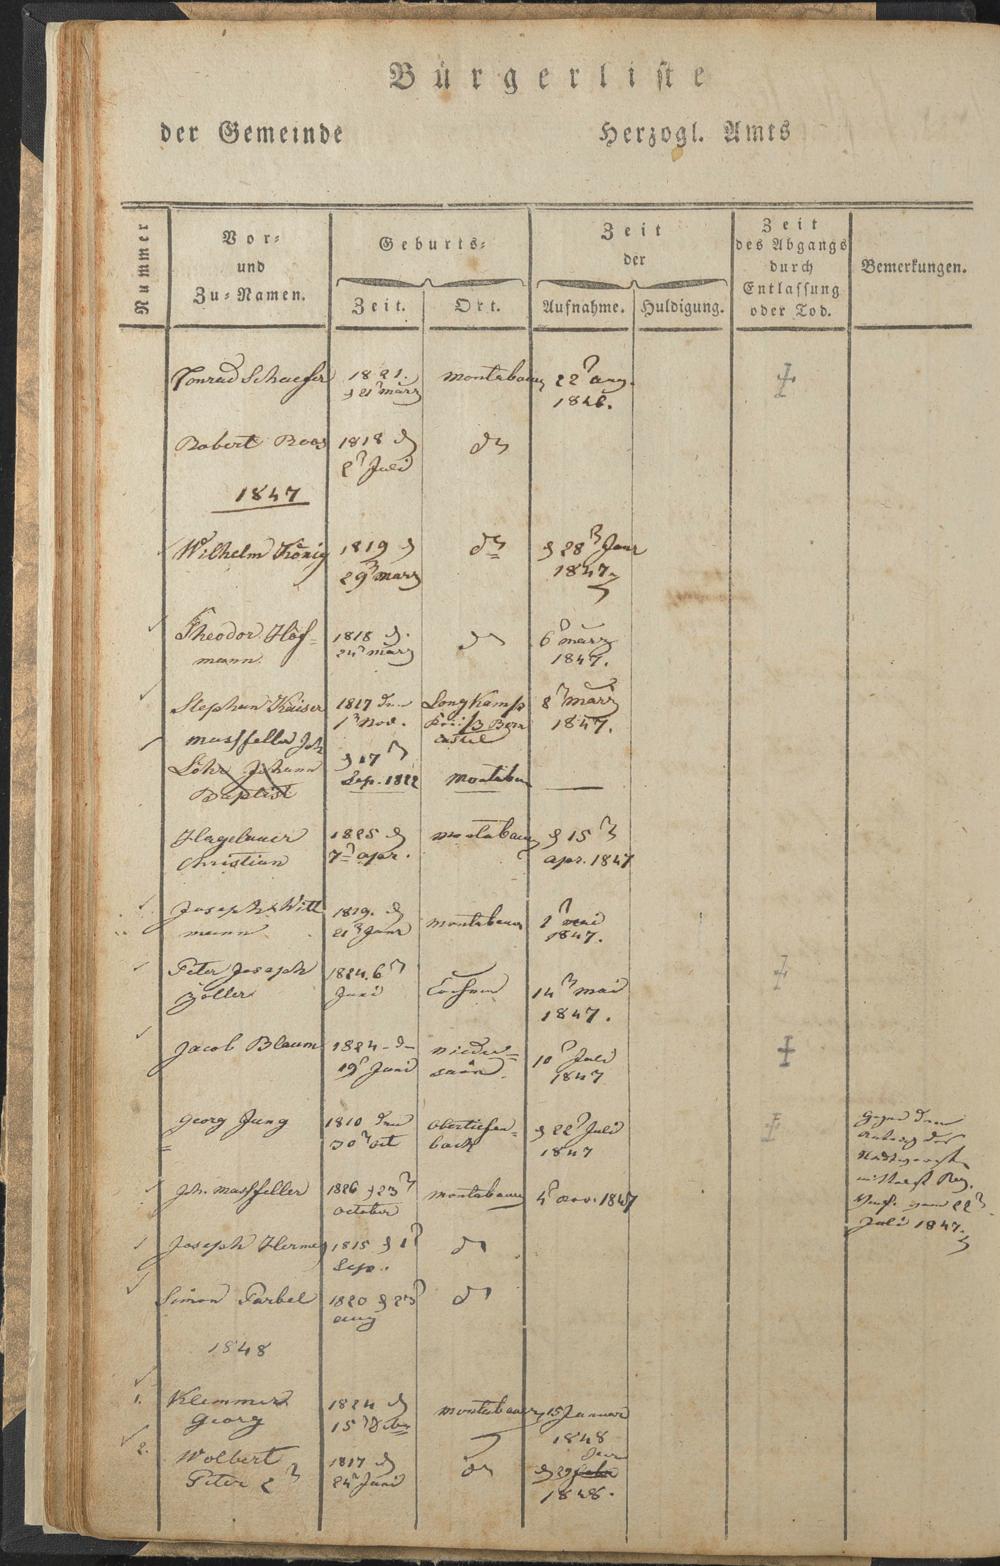 Bürgerliste
der Gemeinde Herzogl. Amts
Nummer
Vor-
und
Zu-Namen.
Geburts-
Zeit. Ort.
Zeit
der
Aufnahme. Huldigung.
Zeit
des Abgangs
durch
Entlassung
oder Tod.
Bemerkungen.
Conrad Schaefer 1821. Montabaur 22 Aug.
d 21 März 1846.
Robert Roos 1818 d do
2 Juli
1847
Wilhelm König 1819 d do d 28 Janr
29 März 1847
Theodor Hof- 1818 d. do 6 März
mann. 24 März 1847.
Stephan Kaiser 1817 den Longkamp 8 März
1 Nov. 1847.
Massfeller Joh
Löhr Johann d 17
Baptist Sep. 1822 Montabaur —
Hagelauer 1825 d Montabaur d 15
Christian 7 Apr. Apr. 1847
Joseph Witt 1819. d Montabaur 1 Mai
mann 21 Janr 1847.
Peter Joseph 1824. 6
Zöller Juni 14 Mai
1847.
Jacob Blaum 1824 d Nieder= 10 Juli
19 Juni 1847
Georg Jung 1810 den Obertiefen= d 22 Juli
30 Oct bach 1847
Gegen den
Antrag des
Reg.
vom 22
Juli 1847.
Joh. Massfeller 1826 d 23 Montabaur 4 Nov. 1847
October
Joseph Hermes 1815 d 1 do
Sep.
Simon Farbel 1820 d 23 do
Aug
1848
1. Klemmer 1824 d Montabaur 15 Januar
Georg 15 1848
2. Wolbert 1817 d do d 29
Peter 2 24 Juni 1848.